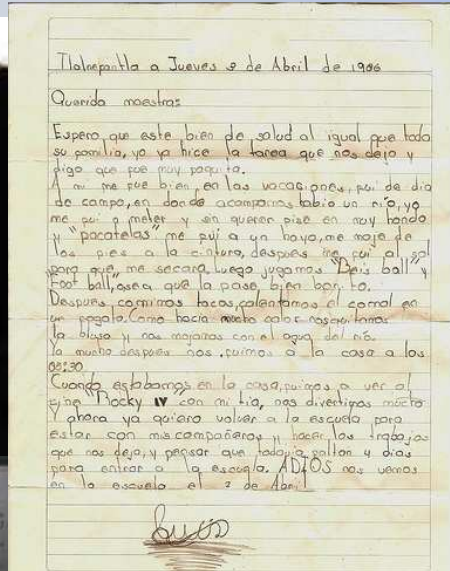 Tlalnepantla a Jueves 3 de Abril de 1986
Querida maestra:
Espero que este bien de salud al igual que toda
su pamilia, yo ya hice la tarea que nos dejo y
digo que pue muy poquita.
A mi me pue bien en las vacasiones, pui de dia
de campo, en donde acampamos habio un rio, yo
me pui a meter y sin querer pise en muy hondo
y "pacatelas" me pui a un hoyo, me moje de
los pies a la cintura, despues me pui al sol
para que me secara. Luego jugamos "Beis ball" y
"Foot ball", osea que la pase bien bonito.
Despues comimos tacos, calentamos el comal en
un pogata. Como hacia mucho calor nos quitamos
la blusa y nos mojamos con el agua del rio.
Ya mucho despues nos puimos a la casa a los
08:30
Cuando estabamos en la casa, puimos a ver al
cine "Rocky IV" con mi tia, nos divertimos mucho
Y ahora ya quiero volver a la escuela para
estar con mis compañeros y hacer los trabajos
que nos deja, y pensar que todavia paltan 4 dias
para entrar a la escuela. ADIOS nos vemos
en la escuela el de Abril